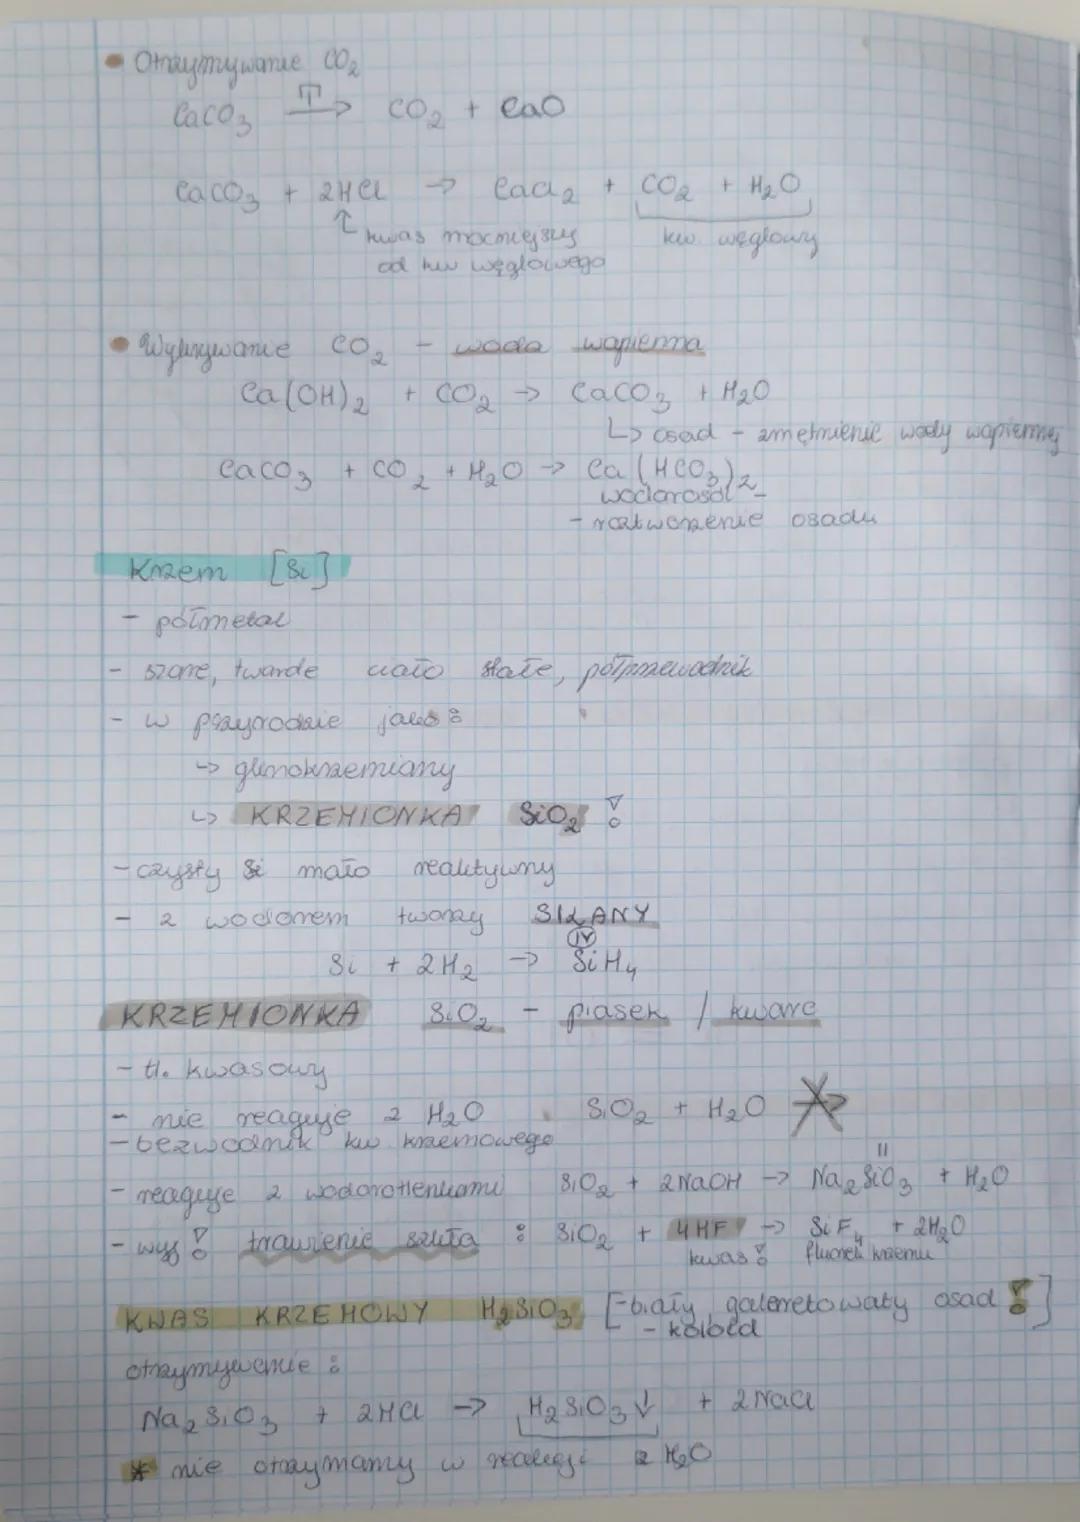 • Otrzymywanie CO₂
CaCO₃ T→ CO₂ + CaO
CaCO₃ + 2HCl → CaCl₂ + CO₂ + H₂O
↑ kwas mocniejszy kw. węglowy
od kw węglowego
• Wykrywanie CO₂ - woda wapienna
Ca(OH)₂ + CO₂ → CaCO₃ + H₂O
↳ osad - zmętnienie wody wapiennej
CaCO₃ + CO₂ + H₂O → Ca(HCO₃)₂
wodorosól
- roztworzenie osadu
Krzem [Si]
- półmetal
- szare, twarde ciało stałe, półprzewodnik
- w przyrodzie jako:
→ glinokrzemiany
↳ KRZEMIONKA SiO₂ !
- czysty Si mało reaktywny
- z wodorem tworzy SILANY
IV
Si + 2H₂ → SiH₄
KRZEMIONKA SiO₂ - piasek / kwarc
- tl. kwasowy
- nie reaguje z H₂O SiO₂ + H₂O →
- bezwodnik kw krzemowego
II
- reaguje z wodorotlenkami SiO₂ + 2NaOH → Na₂SiO₃ + H₂O
- wyj ! trawienie szkła : SiO₂ + 4HF → SiF₄ + 2H₂O
kwas ! fluorek krzemu
KWAS KRZEMOWY H₂SiO₃ [-biały, galaretowaty osad !]
- koloid
otrzymywanie :
Na₂SiO₃ + 2HCl → H₂SiO₃↓ + 2NaCl
* nie otrzymamy w reakcji z H₂O